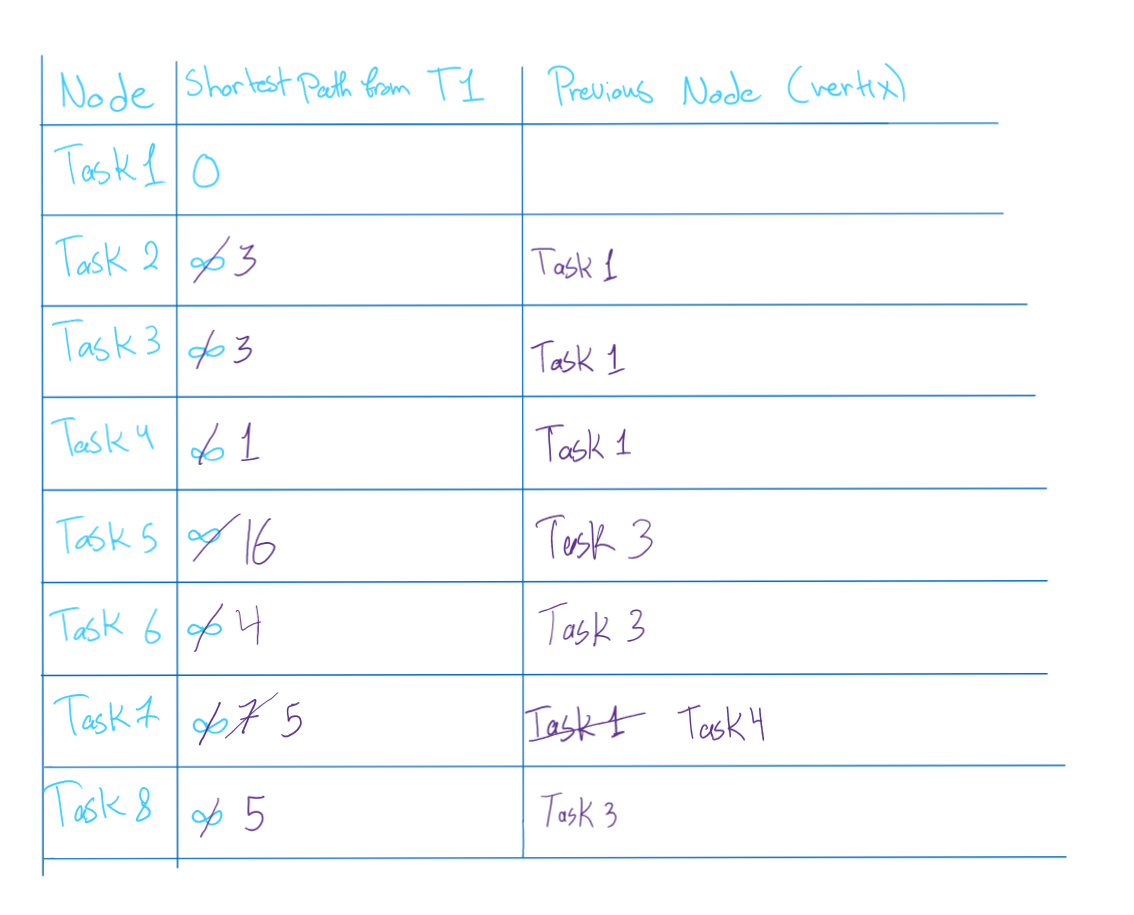 Node Shortest Path from T1 Previous Node (vertix)
Task 1 0
Task 2 ∞ 3 Task 1
Task 3 ∞ 3 Task 1
Task 4 ∞ 1 Task 1
Task 5 ∞ 16 Task 3
Task 6 ∞ 4 Task 3
Task 7 ∞ 7 5 Task 1 Task 4
Task 8 ∞ 5 Task 3